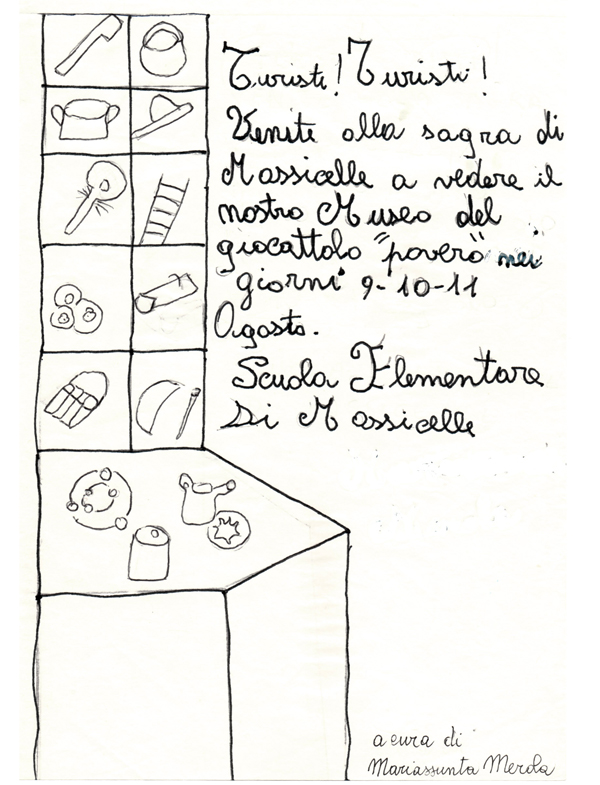 Turisti! Turisti!
Venite alla sagra di
Massicelle a vedere il
nostro Museo del
giocattolo "povero" nei
giorni 9-10-11
Agosto.
Scuola Elementare
Di Massicelle
a cura di
Mariassunta Merola